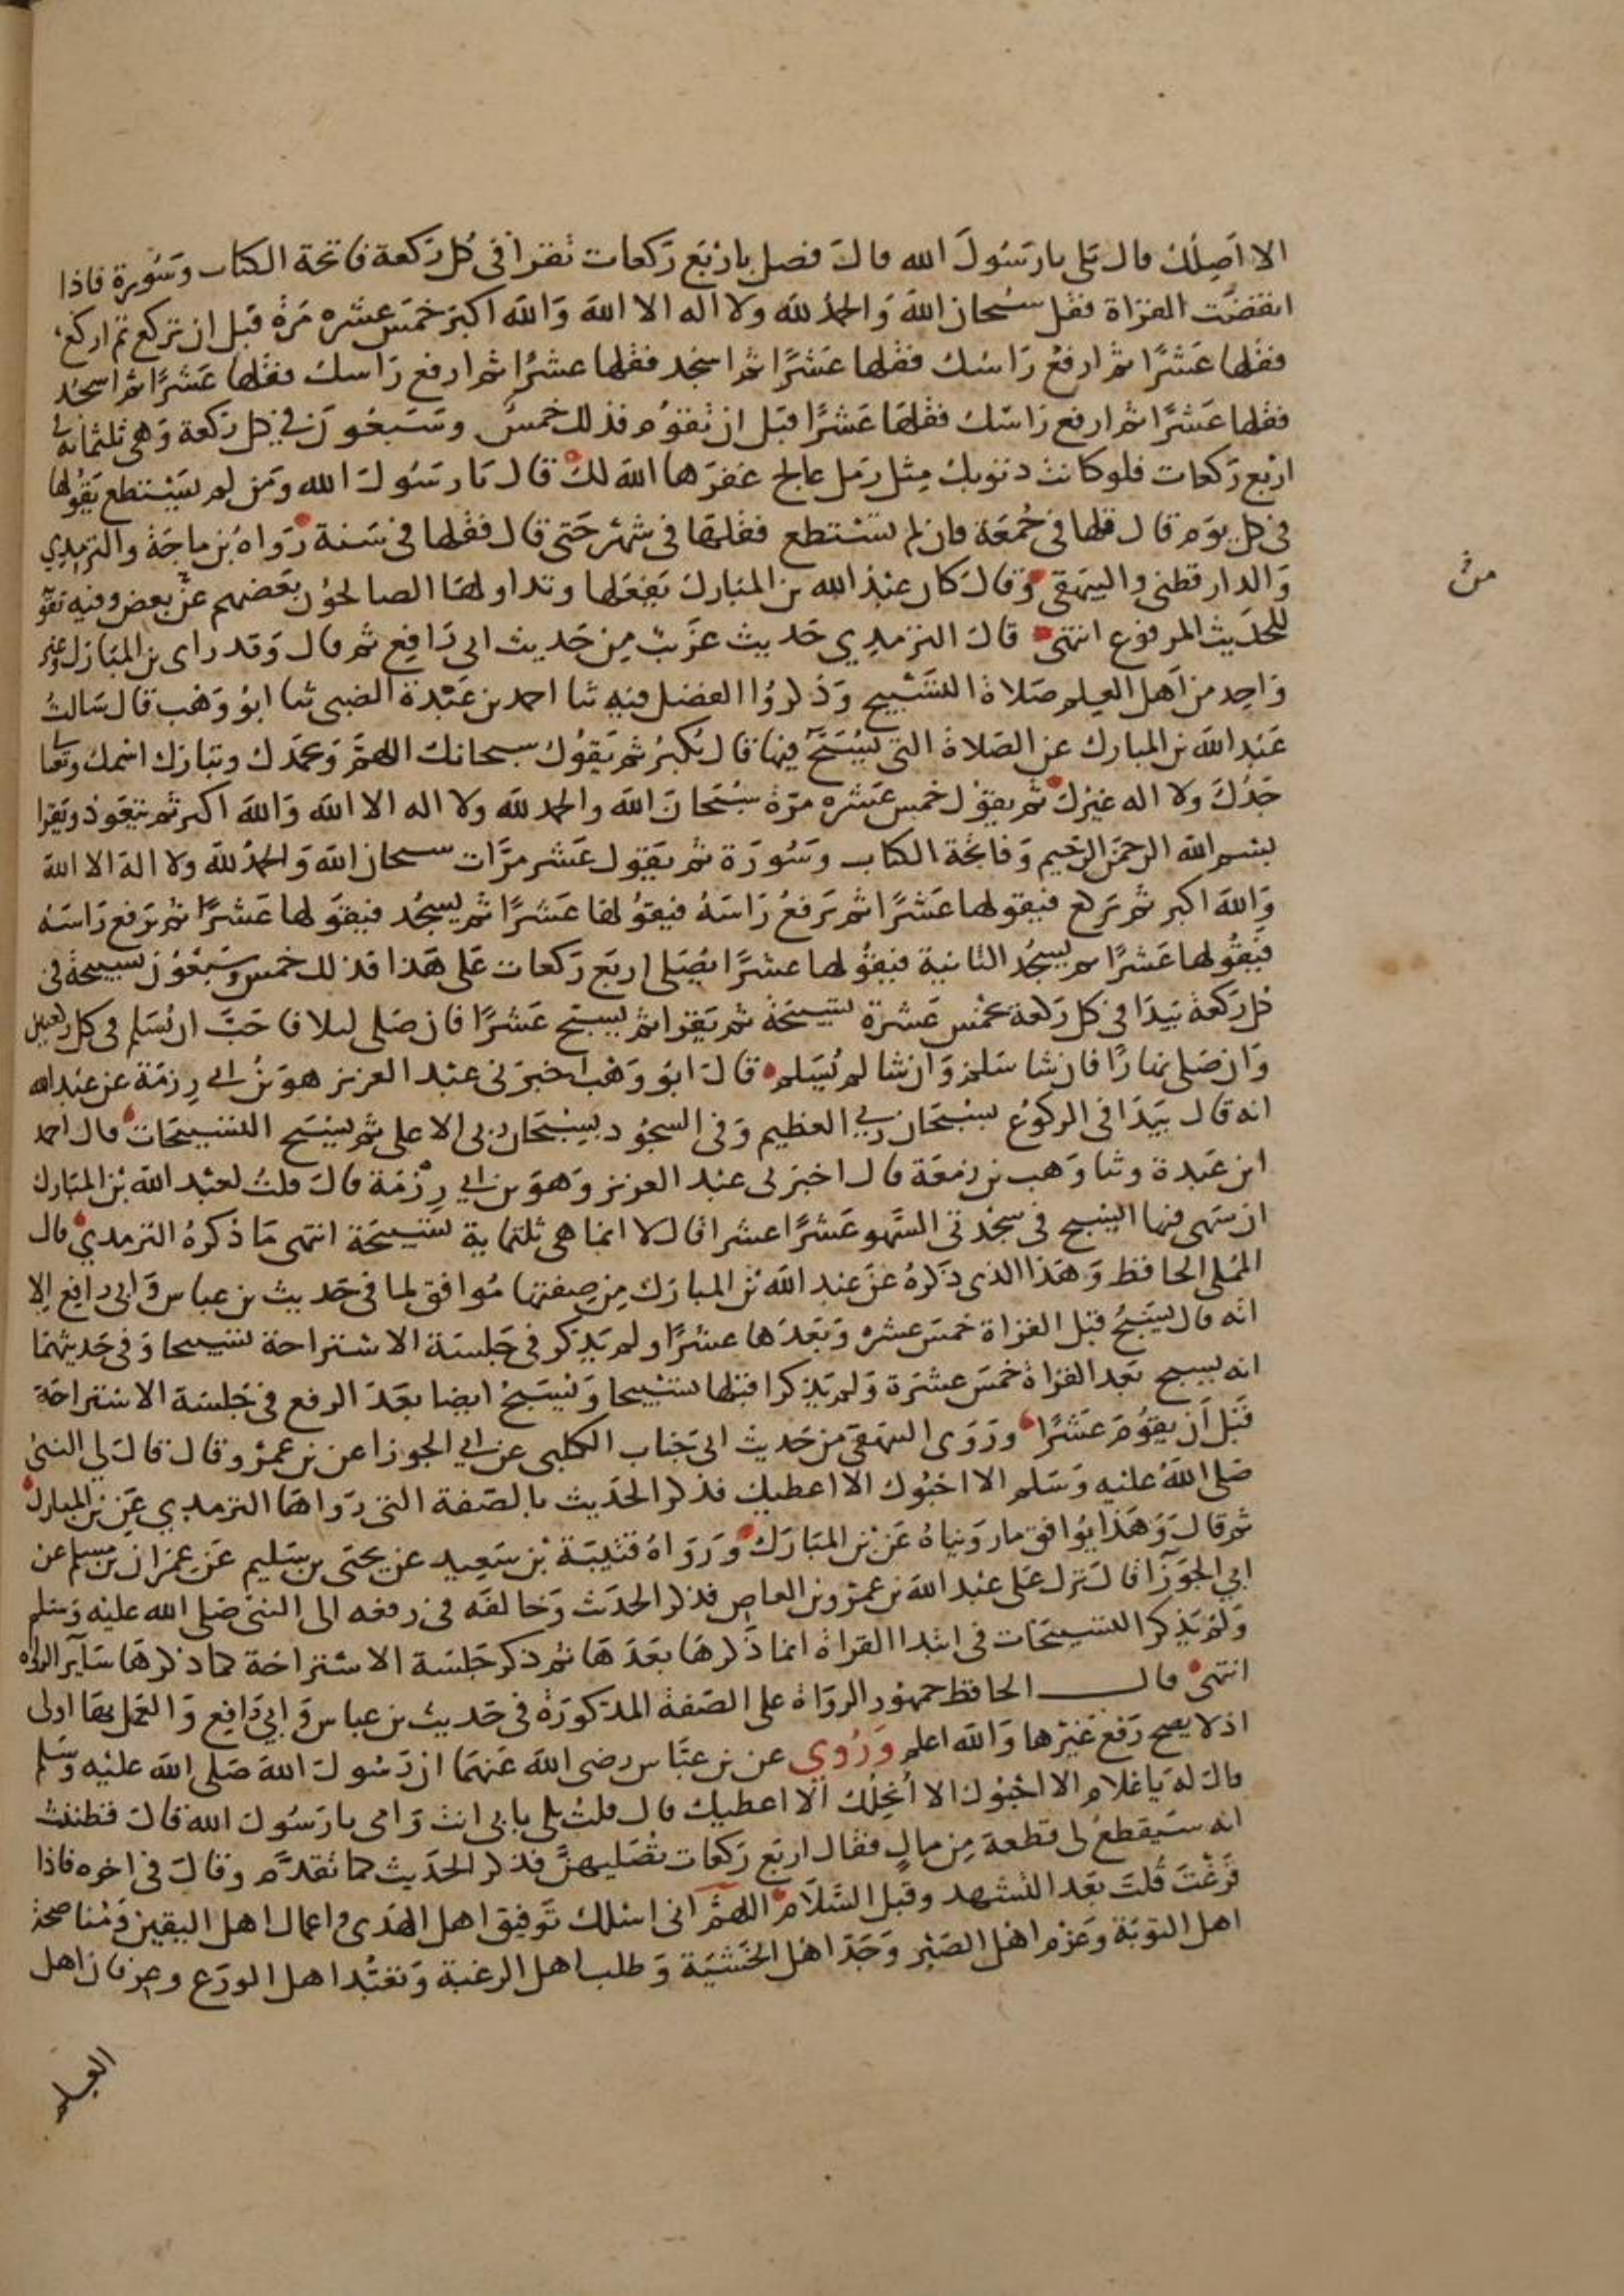 الا اصلك قال بلى يا رسول الله قال فصل يا اربع ركعات تقرا في كل ركعة فاتحة الكتاب وسورة فاذا
انقضت القراة فقل سبحان الله والحمد لله ولا اله الا الله والله اكبر خمس عشره مرة قبل ان تركع ثم اركع
فقلها عشرا ثم ارفع راسك فقلها عشرا ثم اسجد فقلها عشرا ثم ارفع راسك فقلها عشرا ثم اسجد
فقلها عشرا ثم ارفع راسك فقلها عشرا قبل ان تقوم فذلك خمس وسبعون في كل ركعة وهي ثلثمائه في
اربع ركعات فلو كانت ذنوبك مثل رمل عالج غفرها الله لك قال يا رسول الله ومن لم يستطع يقولها
في كل يوم قال قلها في جمعة فان لم تستطع فقلها في شهر حتى قال فقلها في سنة رواه بن ماجة والترمذي
والدارقطني والبيهقي وقال كان عبد الله بن المبارك يفعلها وتداولها الصالحون بعضهم عن بعض وفيه تقوية
من
للحديث المرفوع انتهى قال الترمذي حديث غريب من حديث ابي رافع ثم قال وقد راى بن المبارك وغير
واحد من اهل العلم صلاة التسبيح وذكروا الفضل فيه ثنا احمد بن عبدة الضبي ثنا ابو وهب قال سالت
عبد الله بن المبارك عن الصلاة التي يسبح فيها قال يكبر ثم يقول سبحانك اللهم وبحمدك وتبارك اسمك وتعالى
جدك ولا اله غيرك ثم يقول خمس عشره مرة سبحان الله والحمد لله ولا اله الا الله والله اكبر ثم يتعوذ ويقرا
بسم الله الرحمن الرحيم وفاتحة الكتاب وسورة ثم يقول عشر مرات سبحان الله والحمد لله ولا اله الا الله
والله اكبر ثم يركع فيقولها عشرا ثم يرفع راسه فيقولها عشرا ثم يسجد فيقولها عشرا ثم يرفع راسه
فيقولها عشرا ثم يسجد الثانية فيقولها عشرا يصلي اربع ركعات على هذا فذلك خمس وسبعون تسبيحة في
كل ركعة يبدا في كل ركعة بخمس عشرة تسبيحة ثم يقرا ثم يسبح عشرا فان صلى ليلا فاحب ان يسلم في كل ركعتين
وان صلى نهارا فان شا سلم وان شا لم يسلم قال ابو وهب اخبرني عبد العزيز هو بن ابي رزمة عن عبد الله
انه قال يبدا في الركوع بسبحان ربي العظيم وفي السجود بسبحان ربي الاعلى ثم يسبح التسبيحات قال احمد
ابن عبدة وثنا وهب بن زمعة قال اخبرني عبد العزيز وهو بن ابي رزمة قال قلت لعبد الله بن المبارك
ان سهى فيها ايسبح في سجدتي السهو عشرا عشرا قال لا انما هي ثلثماية تسبيحة انتهى ما ذكره الترمذي قال
المملي الحافظ وهذا الذي ذكره عن عبد الله بن المبارك من صفتها موافق لما في حديث بن عباس وابي رافع الا
انه قال يسبح قبل القراة خمس عشره وبعدها عشرا ولم يذكر في جلسة الاستراحة تسبيحا وفي حديثهما
انه يسبح بعد القراة خمس عشرة ولم يذكرا قبلها تسبيحا ويسبح ايضا بعد الرفع في جلسة الاستراحة
قبل ان يقوم عشرا وروى البيهقي من حديث ابي جناب الكلبي عن ابي الجوزا عن بن عمرو قال قال لي النبي
صلى الله عليه وسلم الا احبوك الا اعطيك فذكر الحديث بالصفة التي رواها الترمذي عن بن المبارك
ثم قال وهذا يوافق ما رويناه عن بن المبارك ورواه قتيبة بن سعيد عن يحيى بن سليم عن عمران بن مسلم عن
ابي الجوزا قال نزل على عبد الله بن عمرو بن العاص فذكر الحديث وخالفه في رفعه الى النبي صلى الله عليه وسلم
ولم يذكر التسبيحات في ابتدا القراة انما ذكرها بعدها ثم ذكر جلسة الاستراحة كما ذكرها ساير الرواه
انتهى قال الحافظ جمهور الرواة على الصفة المذكورة في حديث بن عباس وابي رافع والعمل بها اولى
اذ لا يصح رفع غيرها والله اعلم وروي عن بن عباس رضى الله عنهما ان رسول الله صلى الله عليه وسلم
قال له يا غلام الا احبوك الا انحلك الا اعطيك قال قلت بلى بابي انت وامي يا رسول الله قال فظننت
انه سيقطع لي قطعة من مال فقال اربع ركعات تصليهن فذكر الحديث كما تقدم وقال في اخره فاذا
فرغت قلت بعد التشهد وقبل السلام اللهم اني اسلك توفيق اهل الهدى واعمال اهل اليقين ومناصحة
اهل التوبة وعزم اهل الصبر وجد اهل الخشية وطلب اهل الرغبة وتعبد اهل الورع وعرفان اهل
العلم